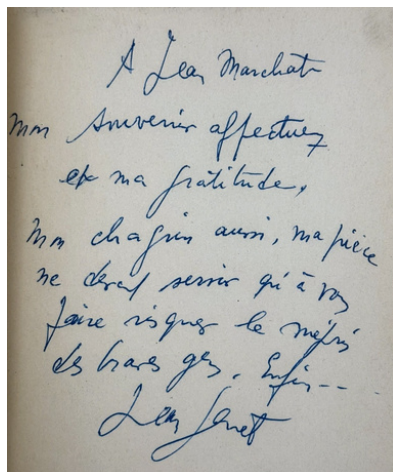 A Jean Marchat
Mon souvenir affectueux
et ma gratitude,
Mon chagrin aussi, ma pièce
ne devait servir qu'à vous
faire risquer le mépris
des braves gens. Enfin--
Jean Genet